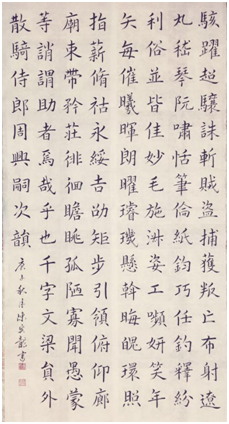 駭躍超驤誅斬賊盜捕獲叛亡布射遼
丸嵇琴阮嘯恬筆倫紙鈞巧任釣釋紛
利俗並皆佳妙毛施淑姿工嚬妍笑年
矢每催曦暉朗曜璿璣懸斡晦魄環照
指薪脩祜永綏吉劭矩步引領俯仰廊
廟束帶矜莊徘徊瞻眺孤陋寡聞愚蒙
等誚謂助者焉哉乎也千字文梁員外
散騎侍郎周興嗣次韻